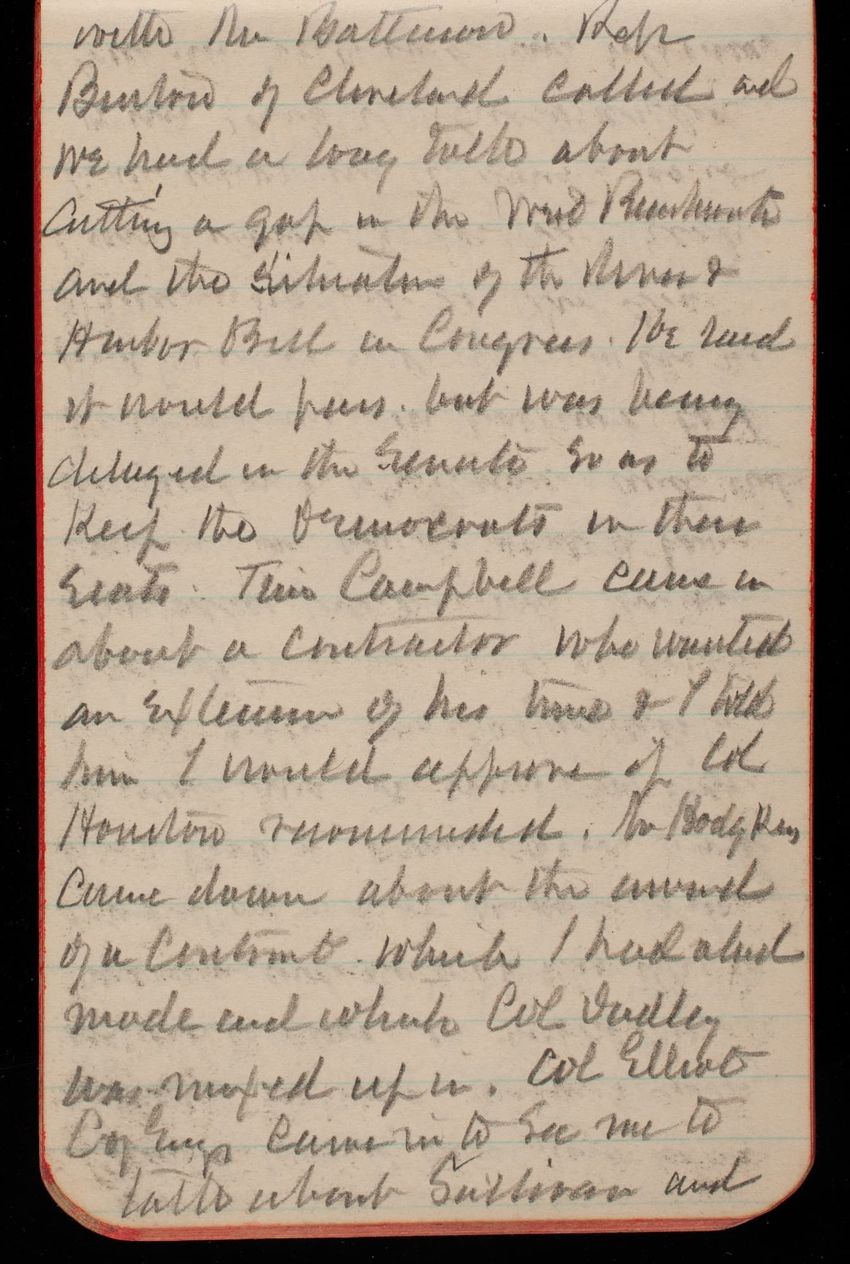 with the Battersons. Rep
Burton of Cleveland called and
we had a long talk about
Cutting a gap in the West Breakwater
and the Situation of the River &
Harbor Bill in Congress. He said
it would pass. but was being
delayed in the Senate so as to
Keep the Democrats in their
Seats. Tim Campbell came in
about a contractor who wanted
an Extension of his time & I told
him I would approve if Col
Houston recommended. Mr
came down about the award
of a Contract which I had
made and which Col
was mixed up in. Col Elliot
Cp Engs came in to See me to
talk about Sullivan and